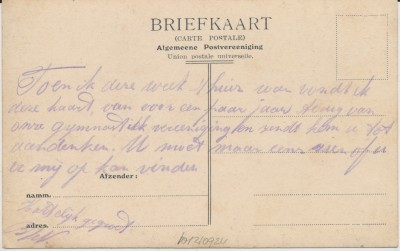 BRIEFKAART
(CARTE POSTALE)
Algemeene Postvereeniging
Union postale universelle.
Toen ik deze week hier was vondt ik
deze kaart, van voor een paar jaar terug van
onze gymnastiek vereeniging en zendt hem u tot
aandenken. U moet maar eens zien of u
er mij op kan vinden
Afzender:
naam:
hartelijk gegroet
adres: